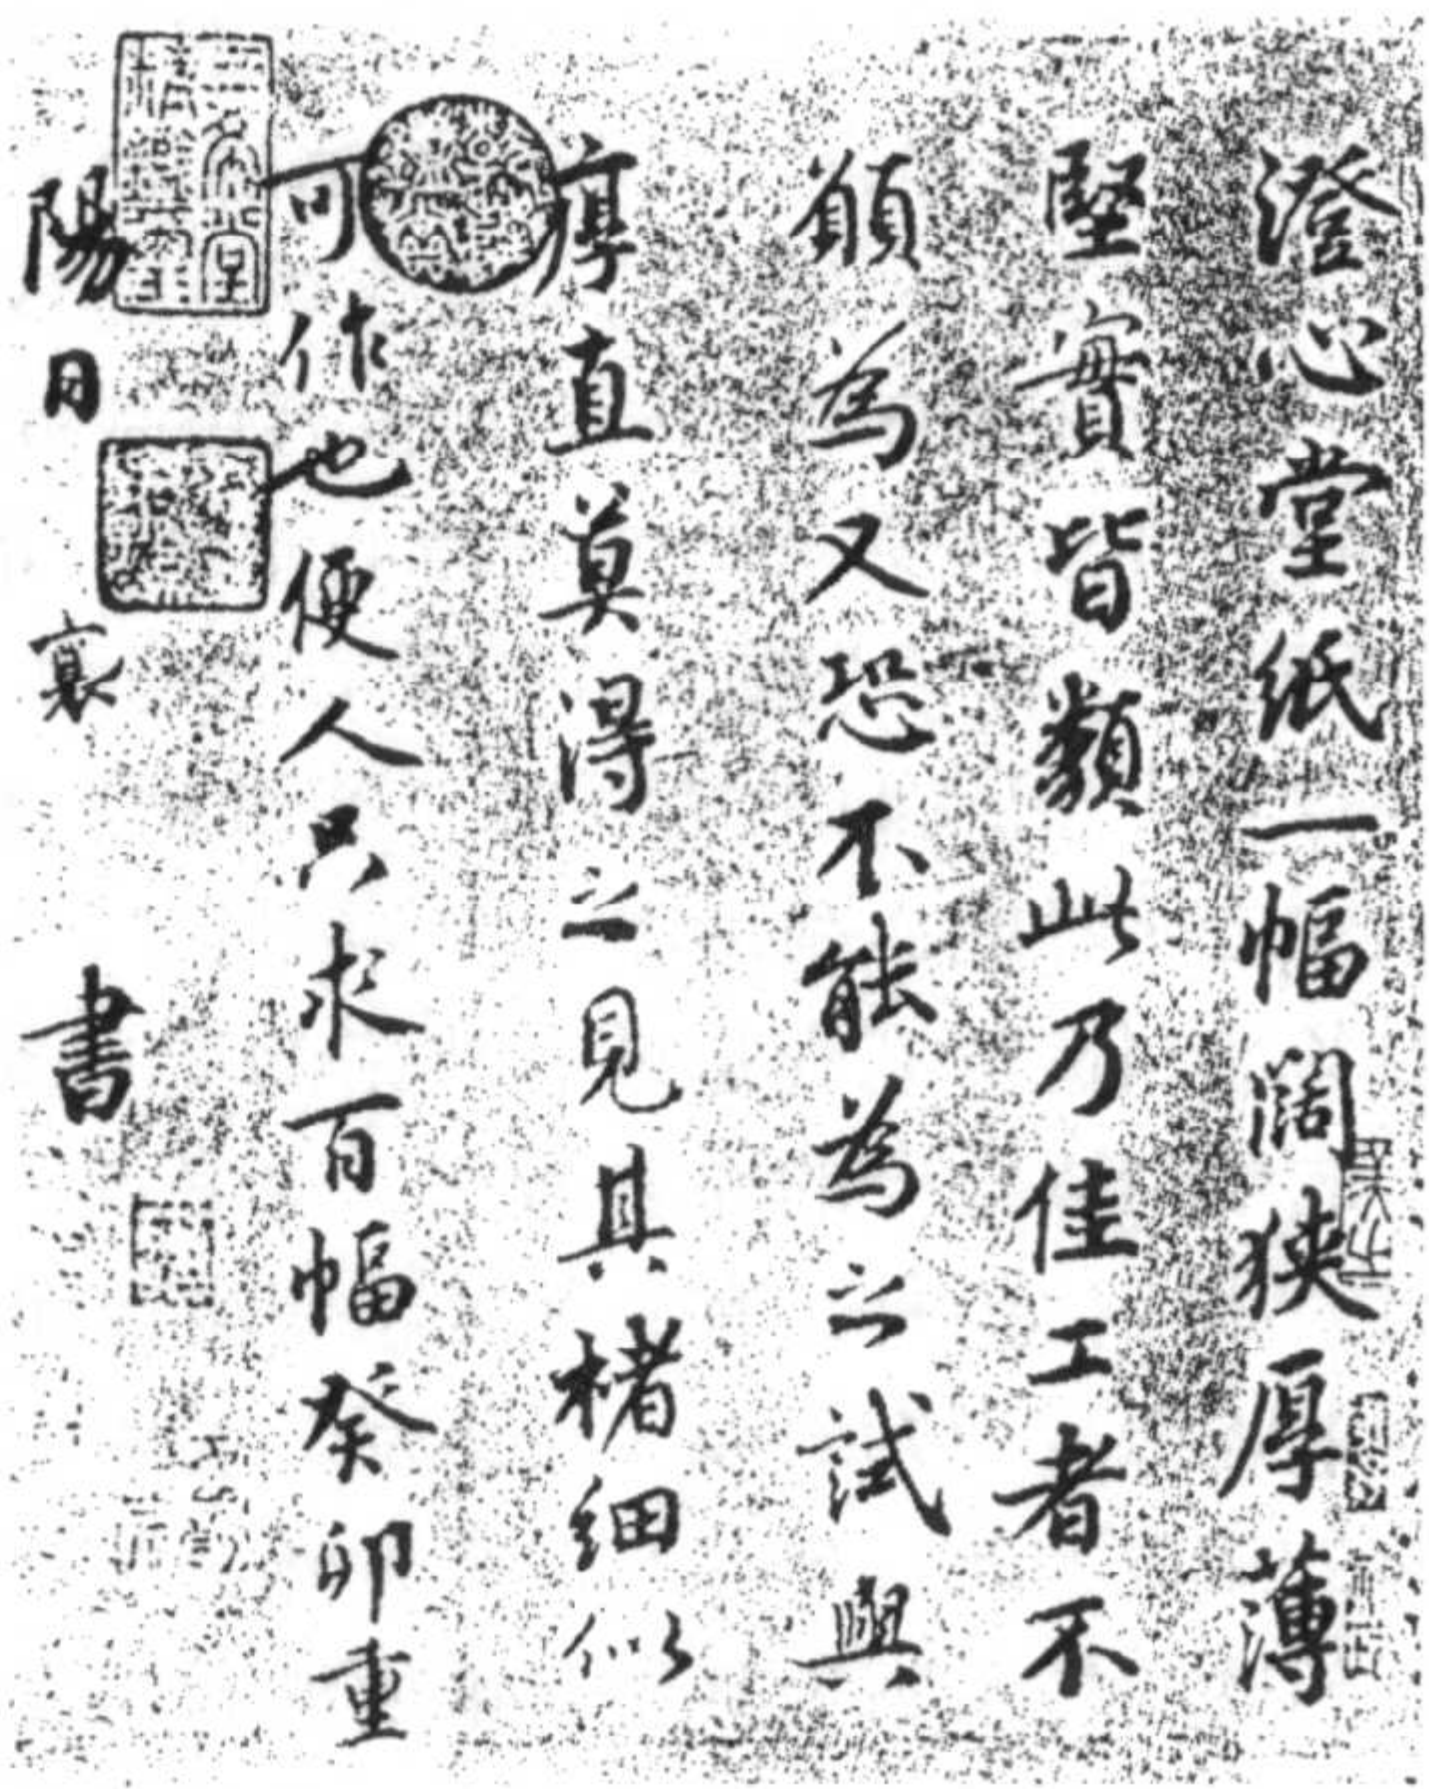 澄心堂紙一幅闊狹厚薄
堅實皆類此乃佳工者不
願為又恐不能為之試與
厚直莫得之見其楮細似
可作也便人只求百幅癸卯重
陽日襄書